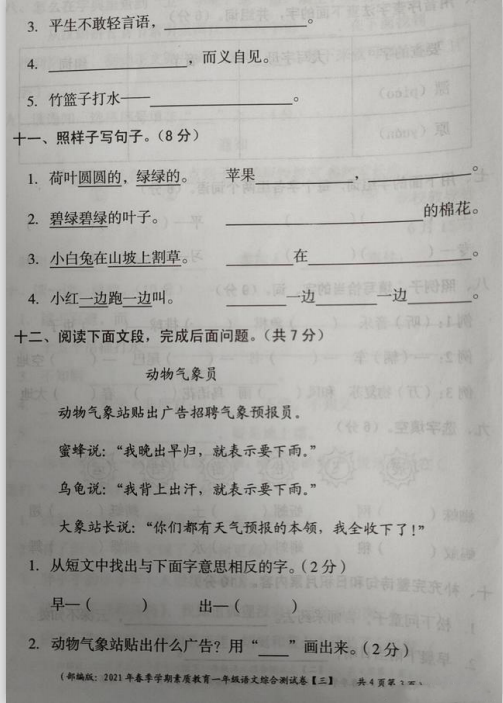 3. 平生不敢轻言语，____________。
4. ____________，而义自见。
5. 竹篮子打水——____________。
十一、照样子写句子。（8分）
1. 荷叶圆圆的，绿绿的。 苹果________，________。
2. 碧绿碧绿的叶子。 ________________的棉花。
3. 小白兔在山坡上割草。 ________在________________。
4. 小红一边跑一边叫。 ________一边________一边________。
十二、阅读下面文段，完成后面问题。（共7分）
动物气象员
动物气象站贴出广告招聘气象预报员。
蜜蜂说：“我晚出早归，就表示要下雨。”
乌龟说：“我背上出汗，就表示要下雨。”
大象站长说：“你们都有天气预报的本领，我全收下了！”
1. 从短文中找出与下面字意思相反的字。（2分）
早—（ ） 出—（
2. 动物气象站贴出什么广告？用“____”画出来。（2分）
（部编版：2021年春季学期素质教育一年级语文综合测试卷【三】 共4页第